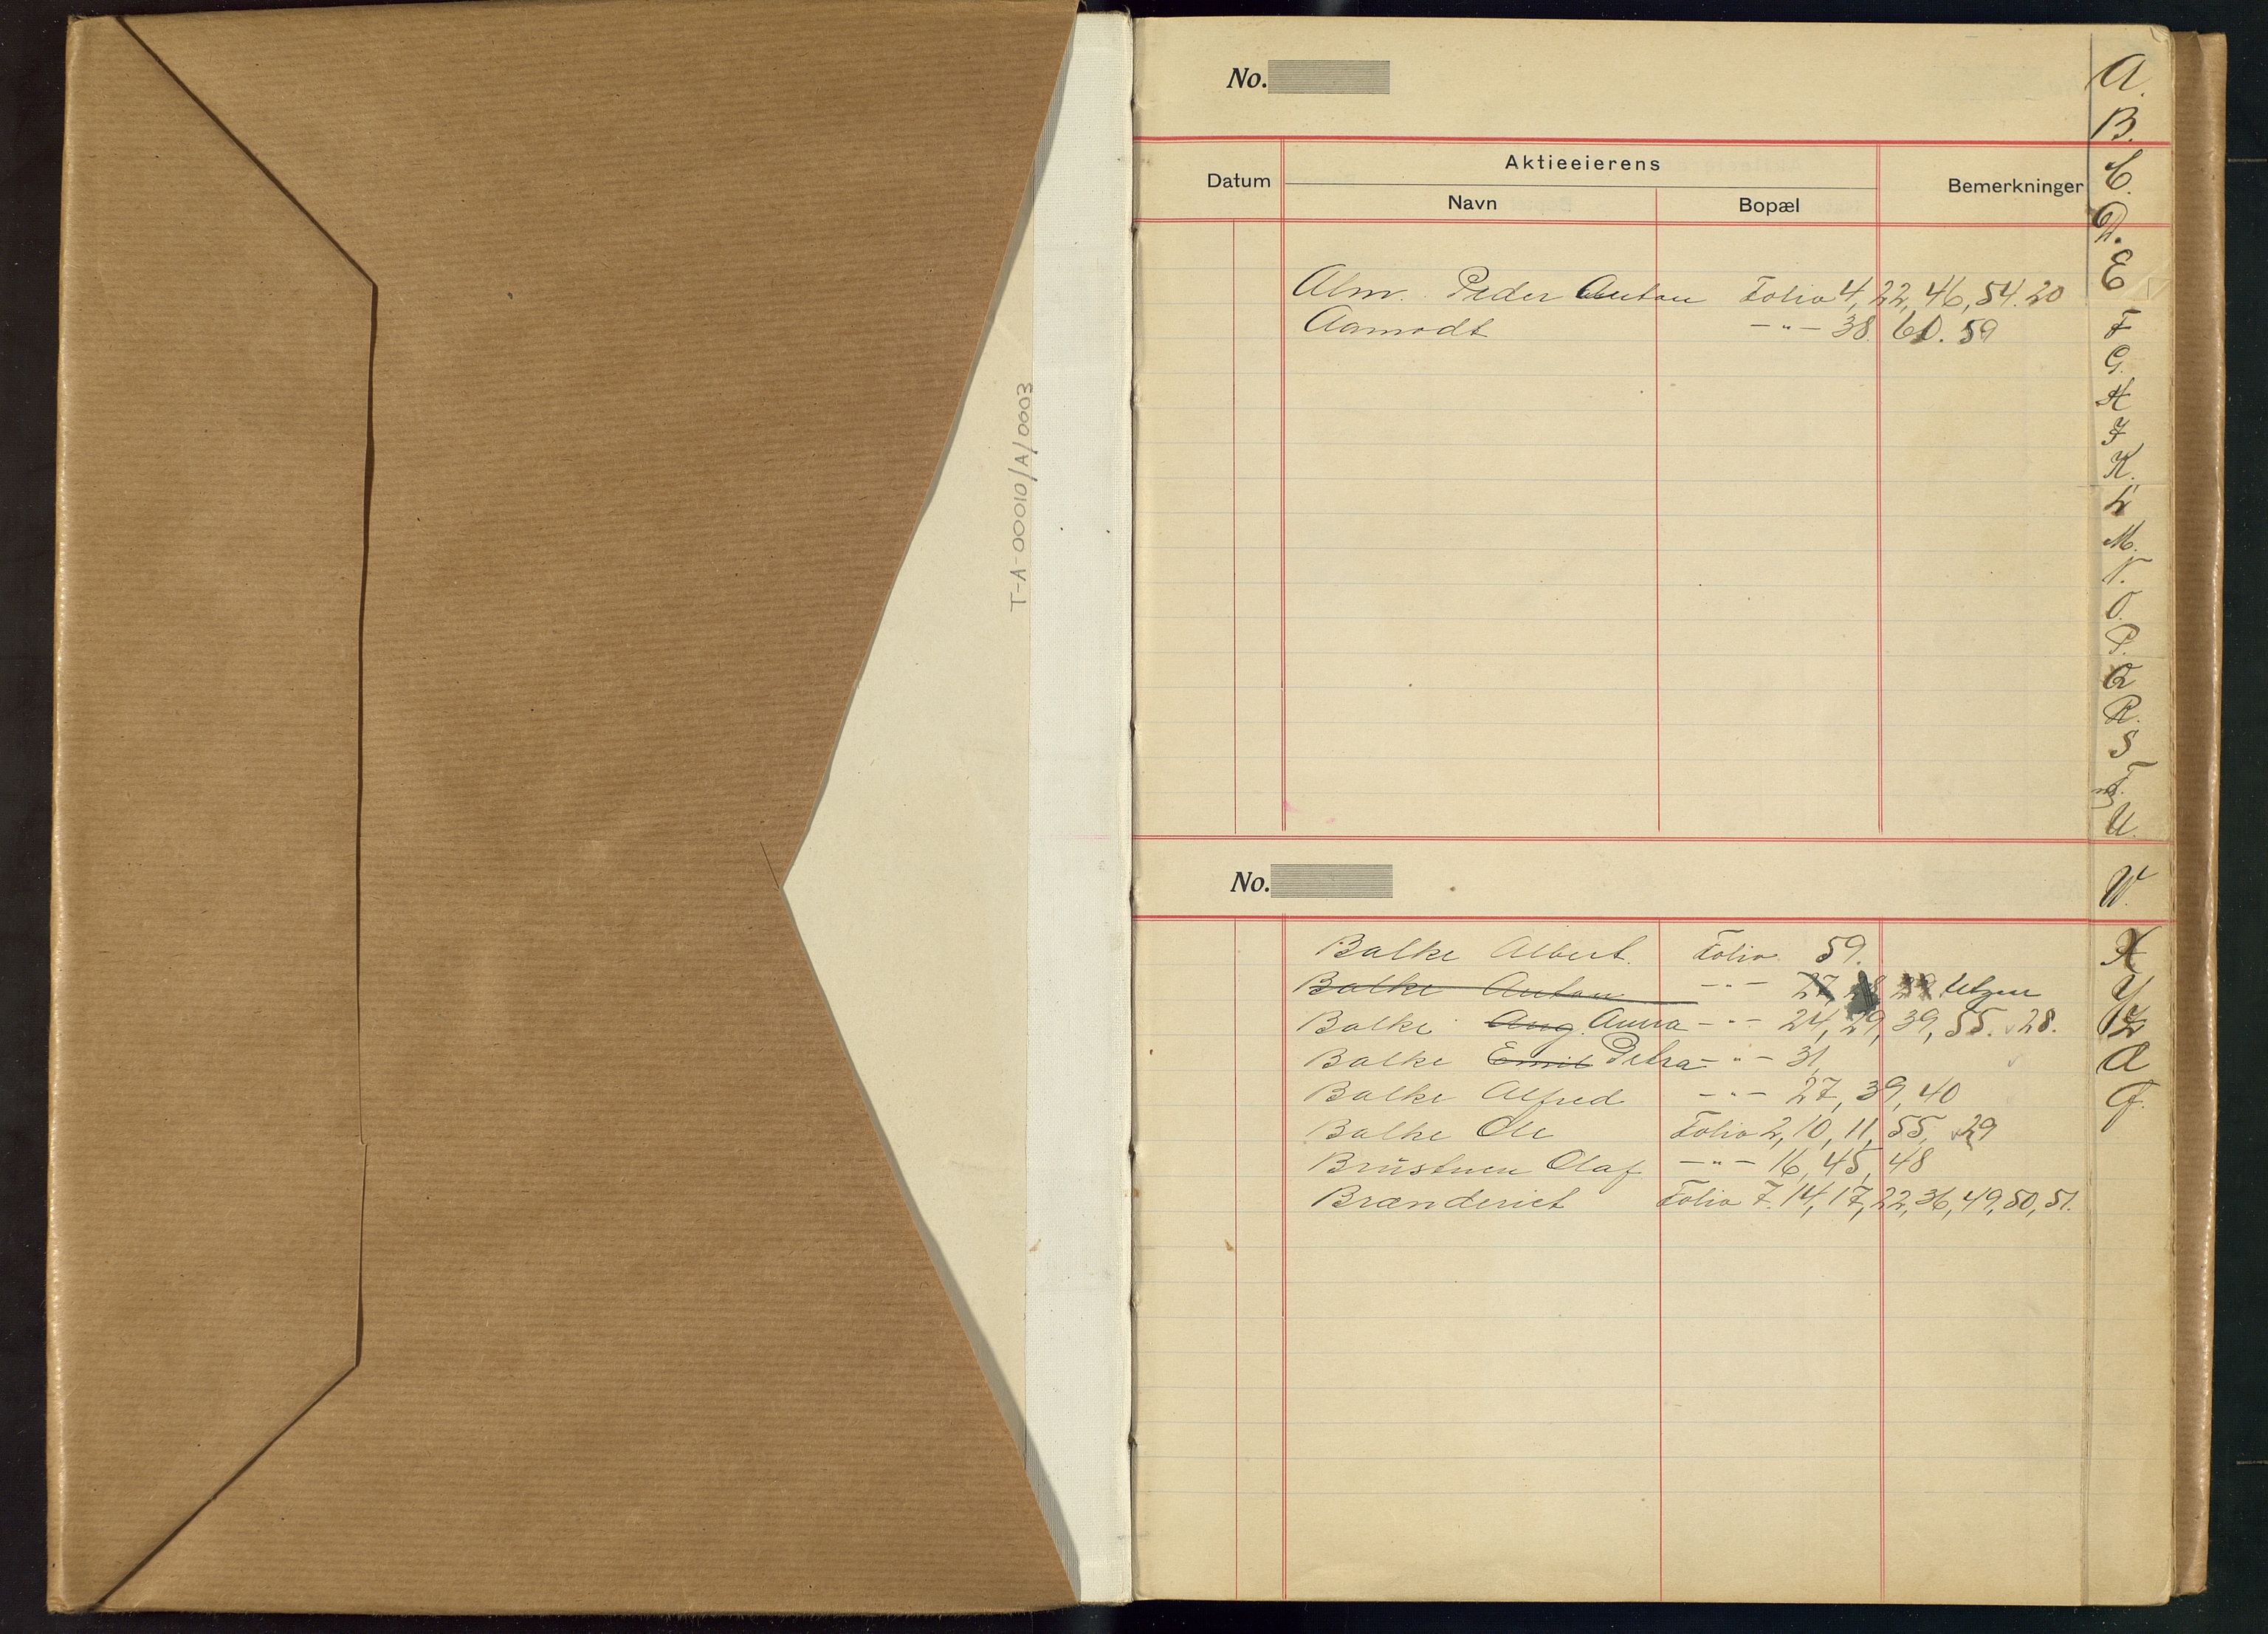 T-A-00010/A/0003
No.
Datum
Aktieeierens
Navn
Bopæl
Bemerkninger
Alm. Peder Anton Folio 4, 22, 46, 54. 20
Aamodt -"- 38. 60. 59
No.
Balke Albert. Folio. 59.
Balke Anton -"- 27, 28 29 Utgaar
Balke Aug. Anna -"- 24, 29, 39, 55. 28.
Balke Emil Petra -"- 31,
Balke Alfred -"- 27, 39, 40
Balke Ole Folio 2, 10, 11, 55, 29
Brüstuen Olaf -"- 16, 45, 48
Brænderiet Folio 7. 14, 17, 22, 36, 49, 50, 51.
A.
B.
C.
D.
E
F
G.
H
I
K.
L
M.
N.
O.
P.
Q
R.
S
T.
U.
W.
X
Y
Z
Æ
Ø.